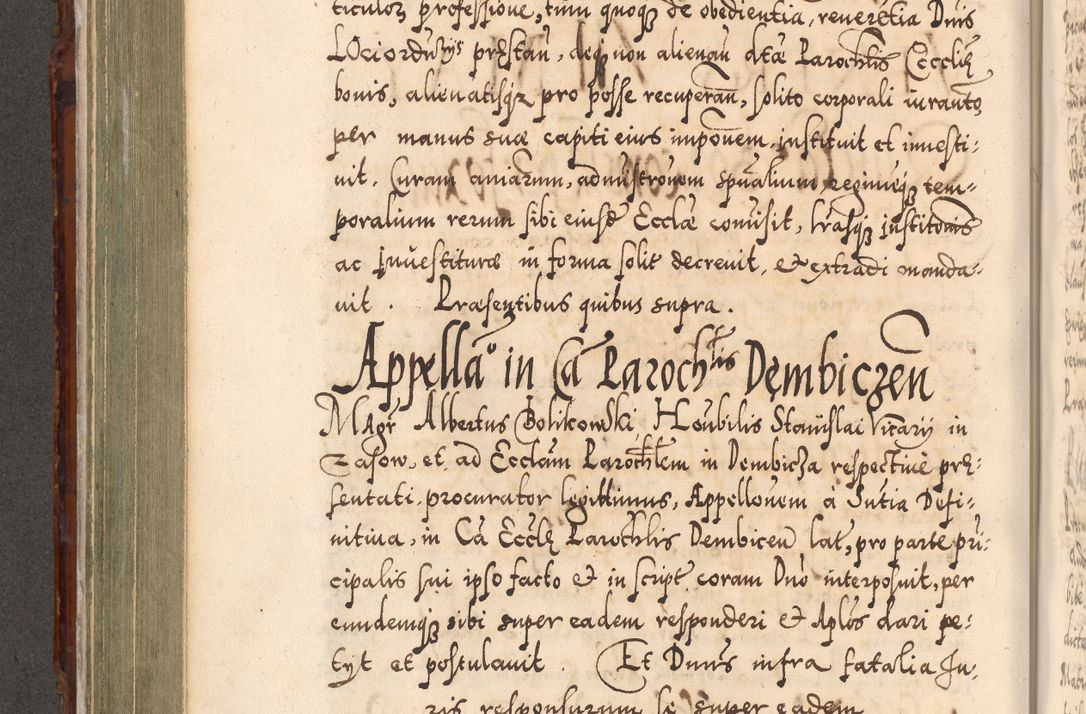 ticulor professione, tum quoque de obedientia, reuerētia Dnis
LOciorduijs prestan, deq non alienan dtæ Parochlis Eccliæ
bonis, alienatisq pro posse recuperan, solito corporali iuranto
per manus suæ capiti eius imponem, instituit et inuesti:
uit. Curam animarum, administronem spualium, regimeq tem=
poralium rerum sibi eiusd Ecclæ comisit, lrasq institonis
ac Inuestituræ in forma solit decreuit, & extradi manda=
uit. Præsentibus quibus supra.
Appella° in Cā Paroch^lis Dembiczen
MAgr Albertus Bolikowski, Honbilis Stanislai Vicarij in
Zasow, et ad Ecclam Parochlem in Dembicza respective præ:
sentati, procurator legittimus, Appellonem a Sntia Defi:
nitiua, in Cā Eccle Parochlis Dembicen lat, pro parte pri:
cipalis sui ipso facto & in script coram Dno interposuit, per
eundemq sibi super eadem responderi & Aplos dari pe:
tyt et postulauit. Et Dnus infra fatalia Iu:
ris responsurum se super eadem